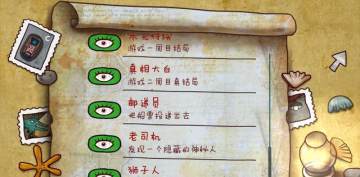 游戏一周目真结局
真相大白
游戏二周目真结局
邮递员
把船票投递出去
老司机
发现一个隐藏的神秘人
狮子人